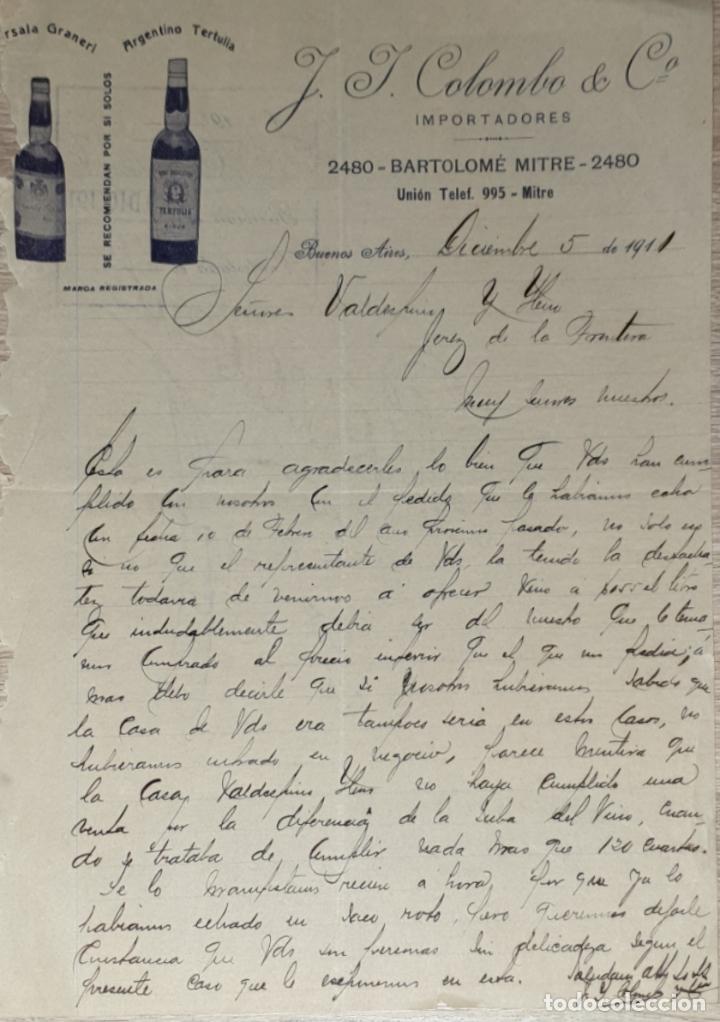 rsala Graneri
Argentino Tertulia
SE RECOMIENDAN POR SI SOLOS
TERTULIA
MARCA REGISTRADA
J. J. Colombo & Cº
IMPORTADORES
2480 - BARTOLOMÉ MITRE - 2480
Unión Telef. 995 - Mitre
Buenos Aires, Diciembre 5 de 1911
Señores Valdespino Y Hno
Jerez de la Frontera
Muy Snrs nuestros.
Esta es para agradecerles lo bien que Vds han cum-
plido con nosotros con el pedido que le habiamos echo
con fecha 10 de Febrero del año proximo pasado, no solo
si no que el representante de Vds, ha tenido la desfacha-
tez todavia de venirnos a ofrecer Vino á el litro
que indudablemente debia ser del mesmo que le tenia-
mos comprado al precio inferior que el que nos pedia; á
mas debo decirle que si nosotros hubieramos sabido que
la Casa de Vds era tampoco seria en estos casos, no
hubieramos entrado en negocio, parece mentira que
la Casa Valdespino Hnos no haya cumplido una
venta por la diferencia de la suba del Vino, cuan-
do se trataba de cumplir nada mas que 120 cuartos.
Se lo manifestamos recien a hora por que ya lo
habiamos echado en saco roto, pero queremos dejarle
constancia que Vds son personas sin delicadeza segun el
presente caso que le exponemos en esta. Saludan
J. J. Colombo
todocoleccion.net